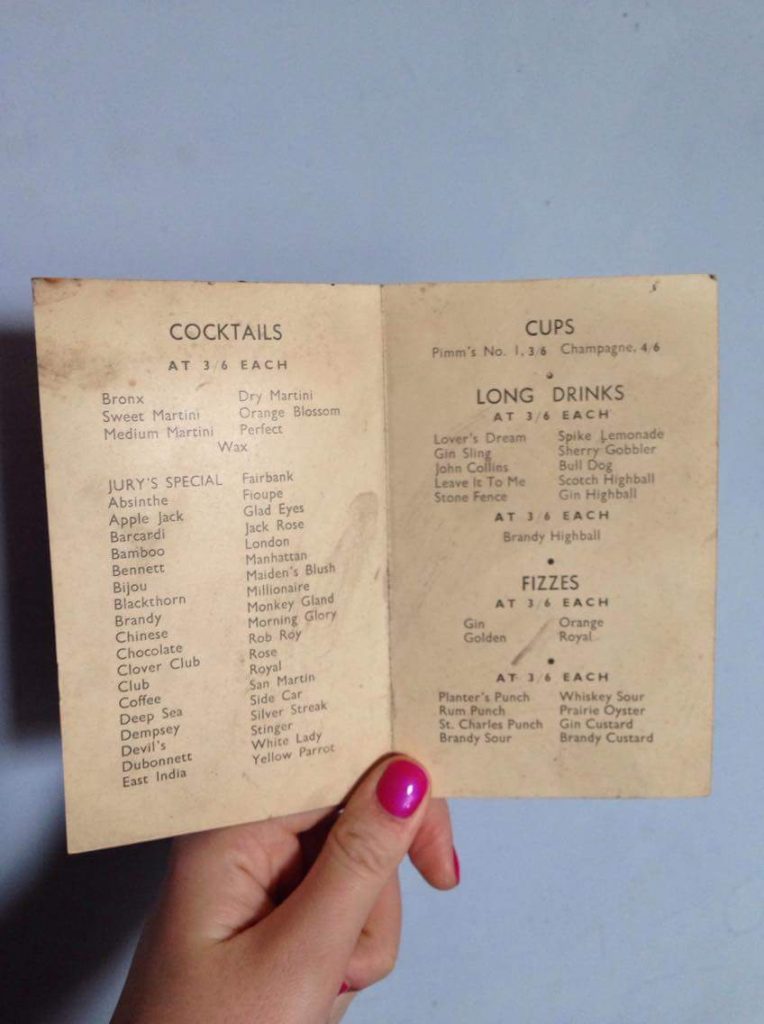 COCKTAILS
AT 3/6 EACH
Bronx
Sweet Martini
Medium Martini
Dry Martini
Orange Blossom
Perfect
Wax
JURY'S SPECIAL
Absinthe
Apple Jack
Barcardi
Bamboo
Bennett
Bijou
Blackthorn
Brandy
Chinese
Chocolate
Clover Club
Club
Coffee
Deep Sea
Dempsey
Devil's
Dubonnett
East India
Fairbank
Fioupe
Glad Eyes
Jack Rose
London
Manhattan
Maiden's Blush
Millionaire
Monkey Gland
Morning Glory
Rob Roy
Rose
Royal
San Martin
Side Car
Silver Streak
Stinger
White Lady
Yellow Parrot
CUPS
Pimm's No. 1, 3/6 Champagne, 4/6
LONG DRINKS
AT 3/6 EACH
Lover's Dream
Gin Sling
John Collins
Leave It To Me
Stone Fence
Spike Lemonade
Sherry Gobbler
Bull Dog
Scotch Highball
Gin Highball
AT 3/6 EACH
Brandy Highball
FIZZES
AT 3/6 EACH
Gin
Golden
Orange
Royal
AT 3/6 EACH
Planter's Punch
Rum Punch
St. Charles Punch
Brandy Sour
Whiskey Sour
Prairie Oyster
Gin Custard
Brandy Custard